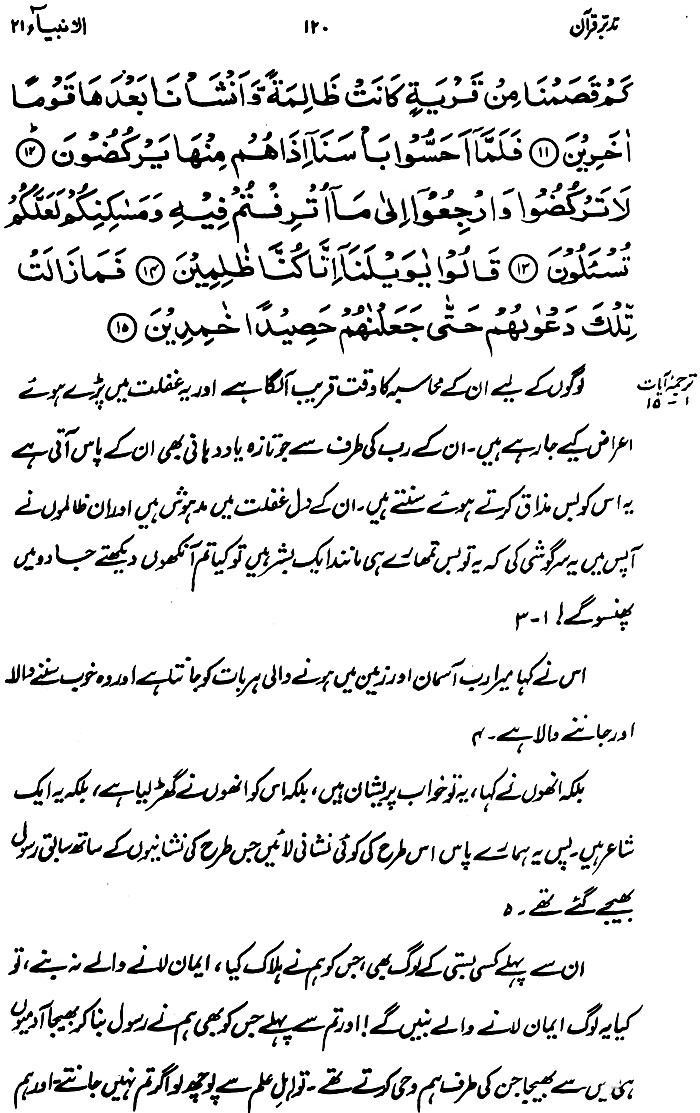 تدبر قرآن ۱۲۰ الانبیآء ۲۱
كَمْ قَصَمْنَا مِنْ قَرْيَةٍ كَانَتْ ظَالِمَةً وَّاَنْشَاْنَا بَعْدَهَا قَوْمًا
اٰخَرِيْنَ ﴿۱۱﴾ فَلَمَّآ اَحَسُّوْا بَاْسَنَآ اِذَا هُمْ مِّنْهَا يَرْكُضُوْنَ ﴿۱۲﴾ ؕ
لَا تَرْكُضُوْا وَارْجِعُوْٓا اِلٰى مَآ اُتْرِفْتُمْ فِيْهِ وَمَسٰكِنِكُمْ لَعَلَّكُمْ
تُسْئَلُوْنَ ﴿۱۳﴾ قَالُوْا يٰوَيْلَنَآ اِنَّا كُنَّا ظٰلِمِيْنَ ﴿۱۴﴾ فَمَا زَالَتْ
تِّلْكَ دَعْوٰىهُمْ حَتّٰى جَعَلْنٰهُمْ حَصِيْدًا خٰمِدِيْنَ ﴿۱۵﴾
ترجمۂ آیات
۱-۱۵
لوگوں کے لیے ان کے محاسبہ کا وقت قریب آ لگا ہے اور یہ غفلت میں پڑے ہوئے
اعراض کیے جا رہے ہیں۔ ان کے رب کی طرف سے جو تازہ یاددہانی بھی ان کے پاس آتی ہے
یہ اس کو بس مذاق کرتے ہوئے سنتے ہیں۔ ان کے دل غفلت میں مدہوش ہیں اور ان ظالموں نے
آپس میں یہ سرگوشی کی کہ یہ تو بس تمھارے ہی مانند ایک بشر ہیں تو کیا تم آنکھوں دیکھتے جادو میں
پھنسو گے! ۱-۳
اس نے کہا میرا رب آسمان اور زمین میں ہونے والی ہر بات کو جانتا ہے اور وہ خوب سننے والا
اور جاننے والا ہے۔ ۴
بلکہ انھوں نے کہا، یہ تو خواب پریشان ہیں، بلکہ اس کو انھوں نے گھڑ لیا ہے، بلکہ یہ ایک
شاعر ہیں۔ پس یہ ہمارے پاس اس طرح کی کوئی نشانی لائیں جس طرح کی نشانیوں کے ساتھ سابق رسول
بھیجے گئے تھے۔ ۵
ان سے پہلے کسی بستی کے لوگ بھی، جس کو ہم نے ہلاک کیا، ایمان لانے والے نہ بنے، تو
کیا یہ لوگ ایمان لانے والے بنیں گے! اور تم سے پہلے جس کو بھی ہم نے رسول بنا کر بھیجا آدمیوں
ہی میں سے بھیجا جن کی طرف ہم وحی کرتے تھے۔ تو اہل علم سے پوچھ لو اگر تم نہیں جانتے۔ اور ہم